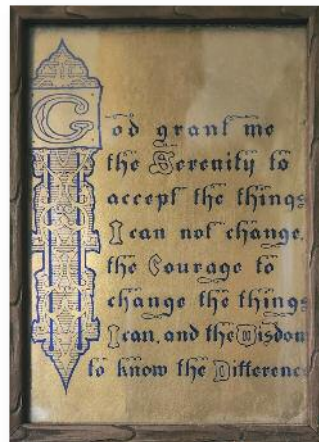 God grant me
the Serenity to
accept the things
I can not change,
the Courage to
change the things
I can, and the Wisdom
to know the Difference